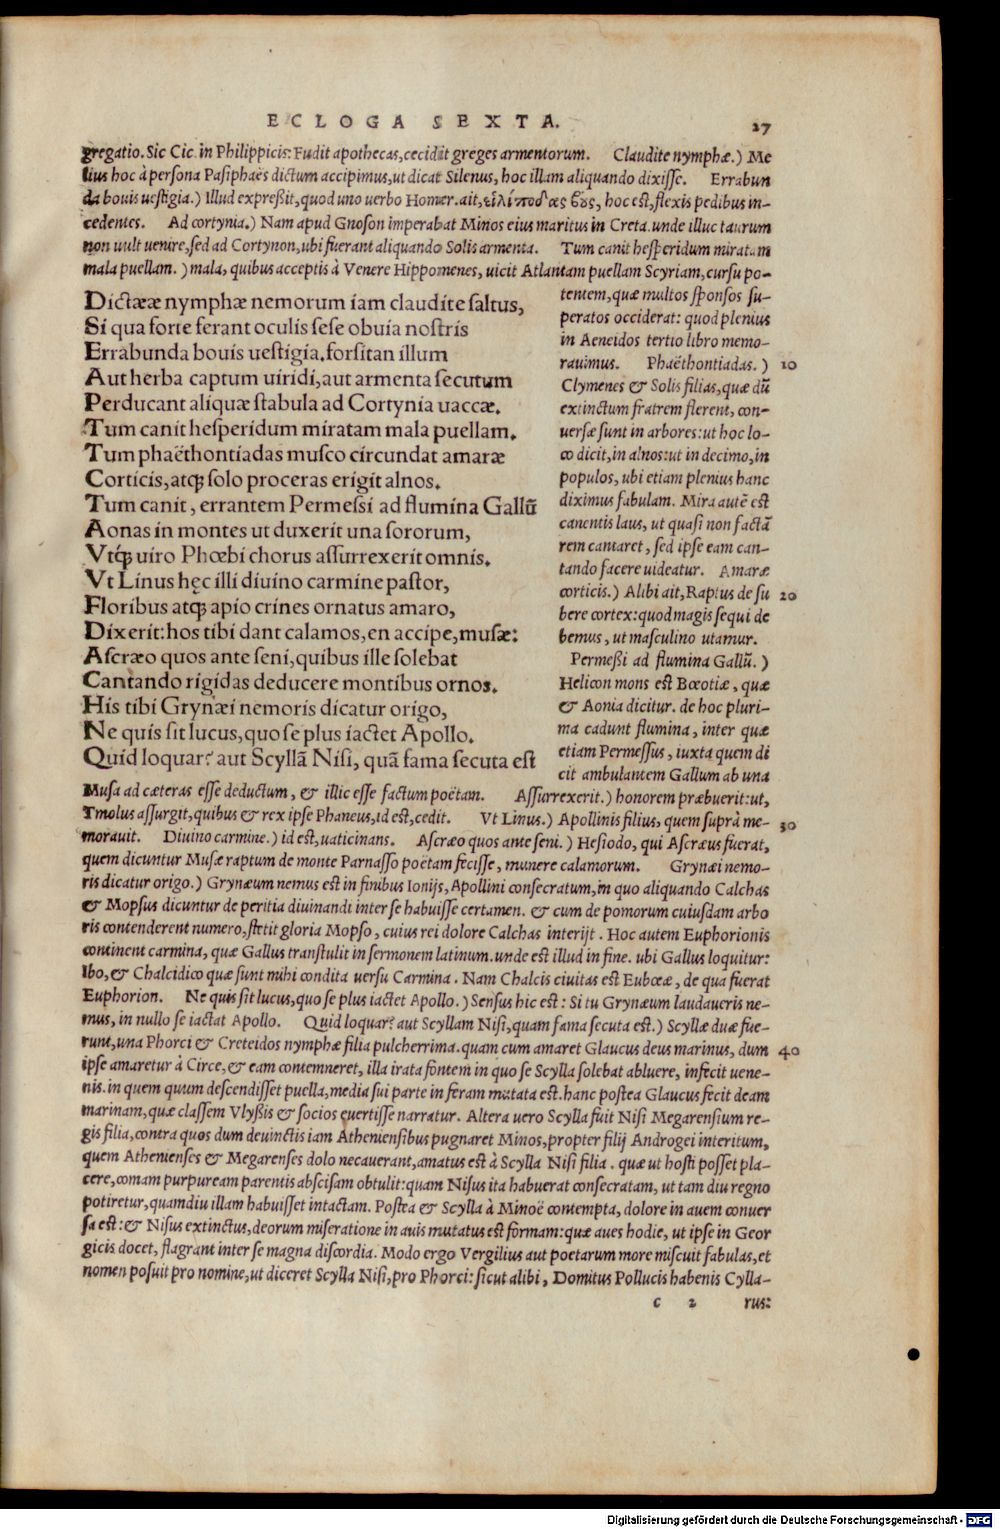 ECLOGA SEXTA. 27
gregatio. Sic Cic. in Philippicis: Fudit apothecas, cecidit greges armentorum. Claudite nymphæ.) Me
lius hoc à persona Pasiphaës dictum accipimus, ut dicat Silenus, hoc illam aliquando dixisse. Errabun
da bouis uestigia.) Illud expreßit, quod uno uerbo Homer. ait, εἰλίποδας βους, hoc est, flexis pedibus in-
cedentes. Ad cortynia.) Nam apud Gnoson imperabat Minos eius maritus in Creta. unde illuc taurum
non uult uenire, sed ad Cortynon, ubi fuerant aliquando Solis armenta. Tum canit hesperidum miratam
mala puellam.) mala, quibus acceptis à Venere Hippomenes, uicit Atlantam puellam Scyriam, cursu po-
Dictææ nymphæ nemorum iam claudite saltus,
Si qua forte ferant oculis sese obuia nostris
Errabunda bouis uestigia, forsitan illum
Aut herba captum uiridi, aut armenta secutum
Perducant aliquæ stabula ad Cortynia uaccæ.
Tum canit hesperidum miratam mala puellam.
Tum phaëthontiadas musco circundat amaræ
Corticis, atq; solo proceras erigit alnos.
Tum canit, errantem Permessi ad flumina Gallũ
Aonas in montes ut duxerit una sororum,
Vtq́; uiro Phœbi chorus assurrexerit omnis.
Vt Linus hęc illi diuino carmine pastor,
Floribus atq; apio crines ornatus amaro,
Dixerit: hos tibi dant calamos, en accipe, musæ:
Ascræo quos ante seni, quibus ille solebat
Cantando rigidas deducere montibus ornos.
His tibi Grynæi nemoris dicatur origo,
Ne quis sit lucus, quo se plus iactet Apollo.
Quid loquar? aut Scyllã Nisi, quã fama secuta est
tentem, quæ multos sponsos su-
peratos occiderat: quod plenius
in Aeneidos tertio libro memo-
rauimus. Phaëthontiadas.) 10
Clymenes & Solis filias, quæ dũ
extinctum fratrem flerent, con-
uersæ sunt in arbores: ut hoc lo-
co dicit, in alnos: ut in decimo, in
populos, ubi etiam plenius hanc
diximus fabulam. Mira autẽ est
canentis laus, ut quasi non factã
rem cantaret, sed ipse eam can-
tando facere uideatur. Amaræ
corticis.) Alibi ait, Raptus de su 20
bere cortex: quod magis sequi de
bemus, ut masculino utamur.
Permeßi ad flumina Gallũ.)
Helicon mons est Bœotiæ, quæ
& Aonia dicitur. de hoc pluri-
ma cadunt flumina, inter quæ
etiam Permessus, iuxta quem di
cit ambulantem Gallum ab una
Musa ad cæteras esse deductum, & illic esse factum poëtam. Assurrexerit.) honorem præbuerit: ut,
Tmolus assurgit, quibus & rex ipse Phaneus, id est, cedit. Vt Linus.) Apollinis filius, quem suprà me- 30
morauit. Diuino carmine.) id est, uaticinans. Ascræo quos ante seni.) Hesiodo, qui Ascræus fuerat,
quem dicuntur Musæ raptum de monte Parnasso poëtam fecisse, munere calamorum. Grynæi nemo-
ris dicatur origo.) Grynæum nemus est in finibus Ionijs, Apollini consecratum, in quo aliquando Calchas
& Mopsus dicuntur de peritia diuinandi inter se habuisse certamen. & cum de pomorum cuiusdam arbo
ris contenderent numero, stetit gloria Mopso, cuius rei dolore Calchas interijt. Hoc autem Euphorionis
continent carmina, quæ Gallus transtulit in sermonem latinum. unde est illud in fine. ubi Gallus loquitur:
Ibo, & Chalcidico quæ sunt mihi condita uersu Carmina. Nam Chalcis ciuitas est Eubœæ, de qua fuerat
Euphorion. Ne quis sit lucus, quo se plus iactet Apollo.) Sensus hic est: Si tu Grynæum laudaueris ne-
mus, in nullo se iactat Apollo. Quid loquar? aut Scyllam Nisi, quam fama secuta est.) Scyllæ duæ fue-
runt, una Phorci & Creteidos nymphæ filia pulcherrima. quam cum amaret Glaucus deus marinus, dum 40
ipse amaretur à Circe, & eam contemneret, illa irata fontem in quo se Scylla solebat abluere, infecit uene-
nis. in quem quum descendisset puella, media sui parte in feram mutata est. hanc postea Glaucus fecit deam
marinam, quæ classem Vlyßis & socios euertisse narratur. Altera uero Scylla fuit Nisi Megarensium re-
gis filia, contra quos dum deuinctis iam Atheniensibus pugnaret Minos, propter filij Androgei interitum,
quem Athenienses & Megarenses dolo necauerant, amatus est à Scylla Nisi filia. quæ ut hosti posset pla-
cere, comam purpuream parentis abscisam obtulit: quam Nisus ita habuerat consecratam, ut tam diu regno
potiretur, quamdiu illam habuisset intactam. Postea & Scylla à Minoë contempta, dolore in auem conuer
sa est: & Nisus extinctus, deorum miseratione in auis mutatus est formam: quæ aues hodie, ut ipse in Geor
gicis docet, flagrant inter se magna discordia. Modo ergo Vergilius aut poetarum more miscuit fabulas, et
nomen posuit pro nomine, ut diceret Scylla Nisi, pro Phorci: sicut alibi, Domitus Pollucis habenis Cylla-
c 2 rus:
Digitalisierung gefördert durch die Deutsche Forschungsgemeinschaft - DFG